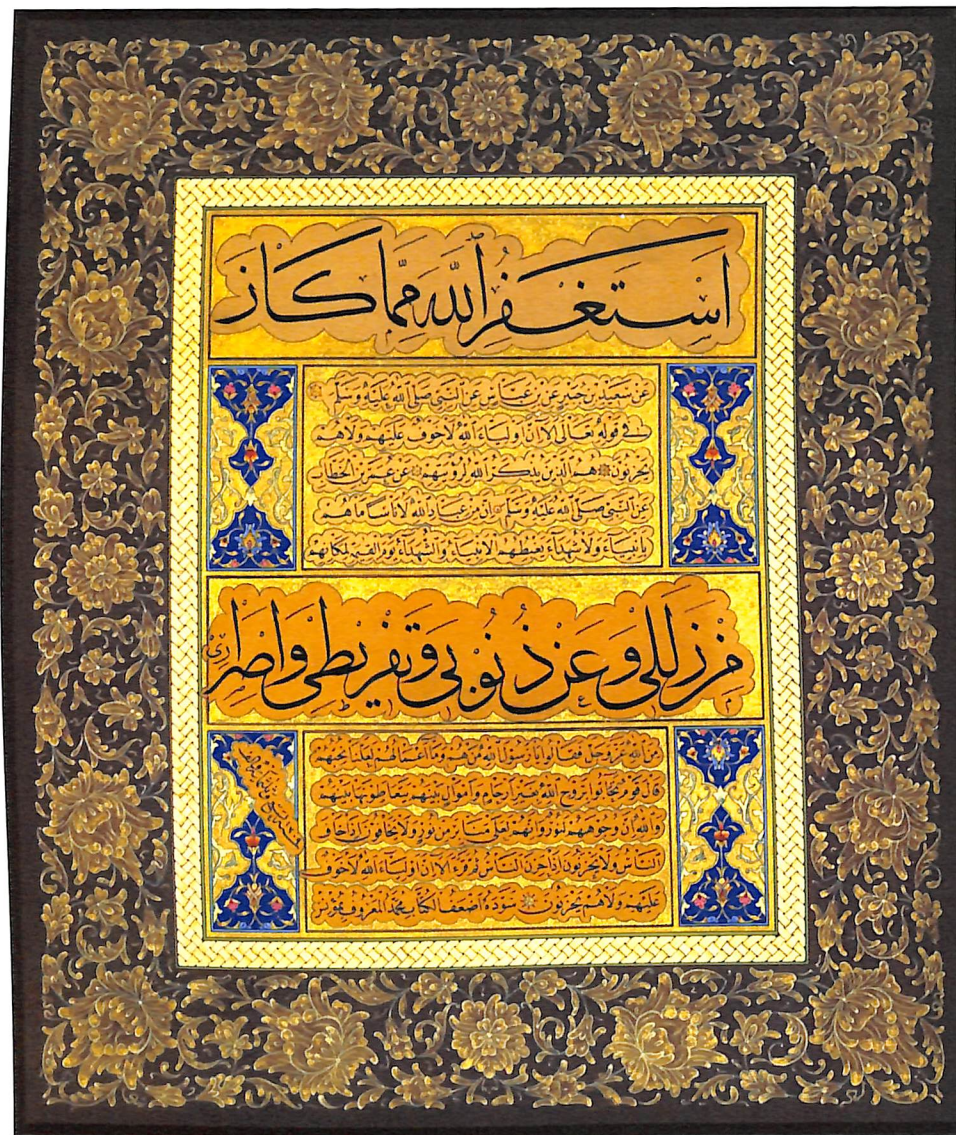 استغفر الله مما كان
عن سعيد بن جبير عن بن عباس عن النبي صلى الله عليه وسلم
في قوله تعالى الا ان اولياء الله لا خوف عليهم ولا هم
يحزنون هم الذين يذكر الله لرؤيتهم عن عمر بن الخطاب
عن النبي صلى الله عليه وسلم ان من عباد الله لاناسا ما هم
بانبياء ولا شهداء يغبطهم الانبياء والشهداء يوم القيمة لمكانهم
من زللي وعن ذنوبي وتفريطي واصراري
من الله عز وجل فقالوا يا رسول الله من هم وما اعمالهم لعلنا نحبهم
قال قوم تحابوا بروح الله بغير ارحام واموال بينهم يتعاطونها بينهم
والله ان وجوههم لنور وانهم لعلى منابر من نور ولا يخافون اذا خاف
الناس ولا يحزنون اذا حزن الناس ثم قرء الا ان اولياء الله لا خوف
عليهم ولا هم يحزنون سوده اضعف الكتاب محمد المعروف بمؤنس